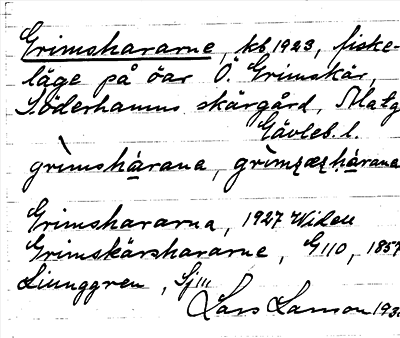 Grimshararne, kb 1923, fiske-
läge på öar Ö. Grimskär,
Söderhamns skärgård,
Gävleb. l.
grìmshàrana,
Grimshararna, 1927 Widen
Grimskärshararne, G110, 1857
Ljunggren, Sj III
Lars Larsson